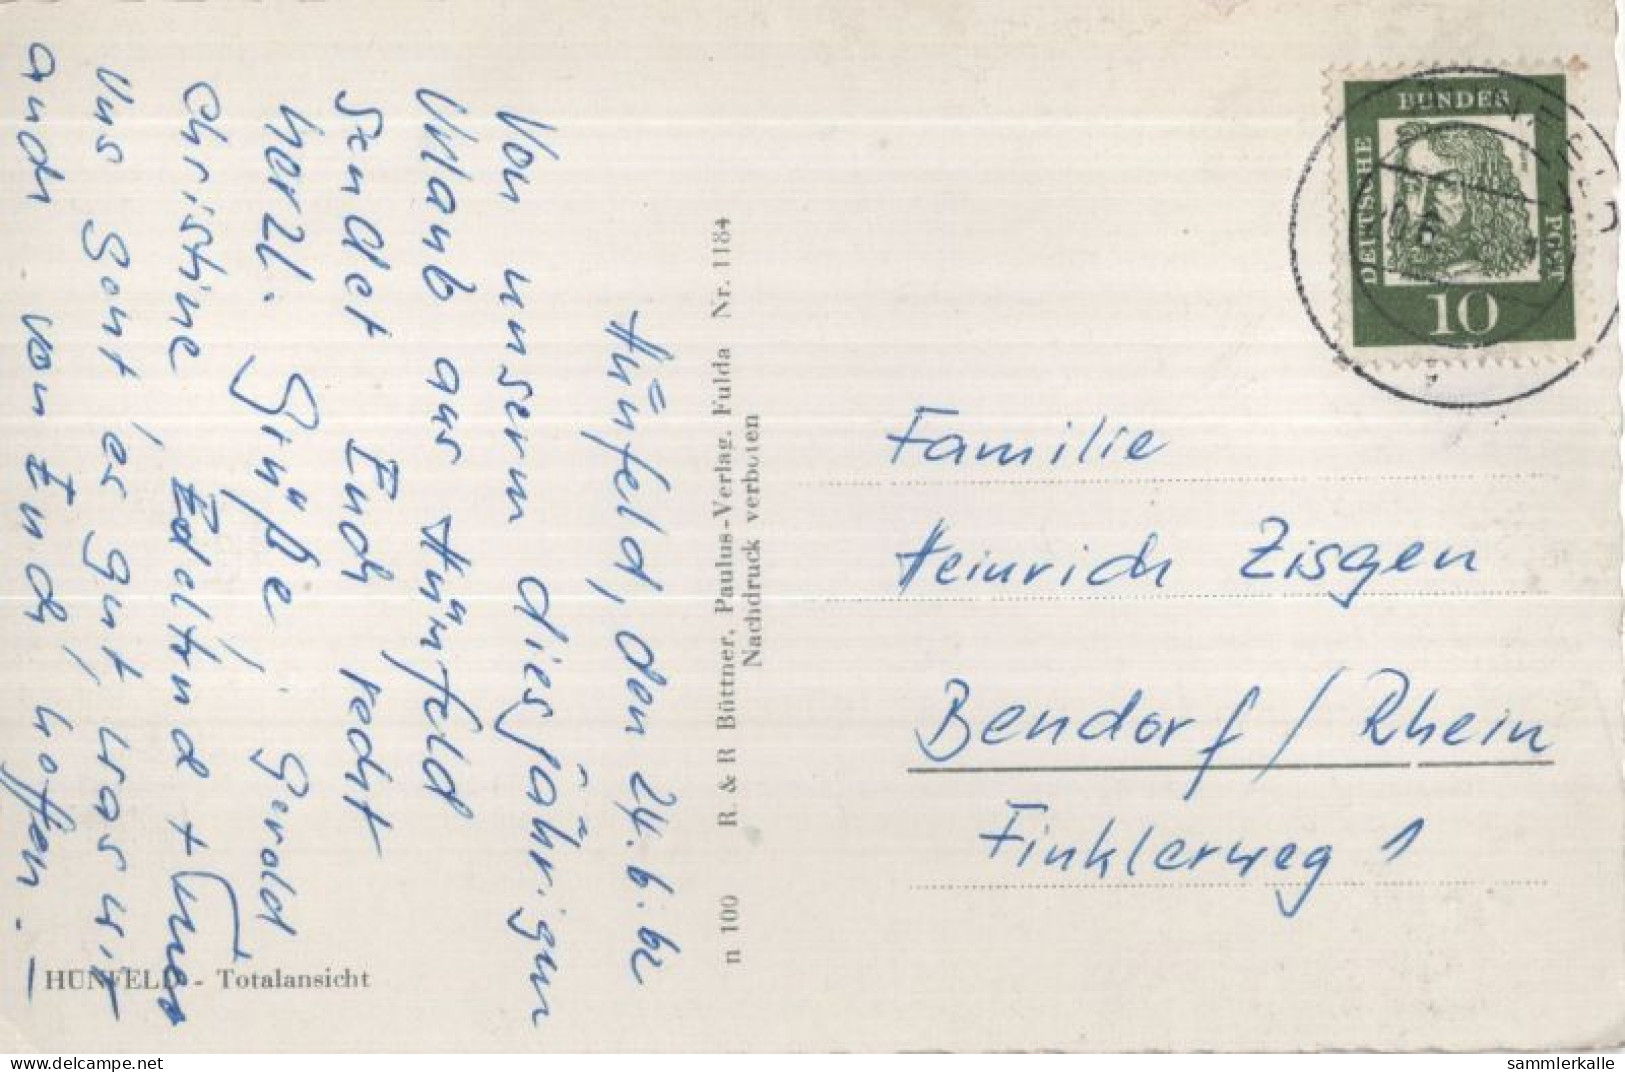 Hünfeld, den 24.6.62
Von unserm diesjährigen
Urlaub aus Hünfeld
sendet Euch recht
herzl. Grüße, Gerold
Christine Edeltrud +
Uns geht es gut, was wir
auch von Euch, hoffen. –
HÜNFELD - Totalansicht
n 100 R. & R Büttner, Paulus-Verlag. Fulda Nr. 1184
Nachdruck verboten
DEUTSCHE
BUNDES
POST
10
Familie
Heinrich Zisgen
Bendorf / Rhein
Finklerweg 1
delcampe.net
sammlerkalle